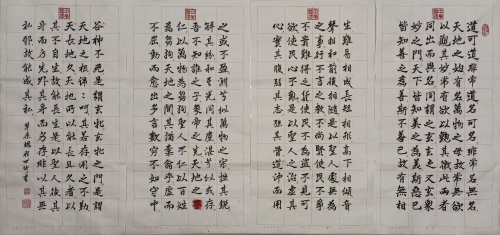 道可道非常道名可名非常名無名
天地之始有名萬物之母故常無欲
以觀其妙常有欲以觀其徼此兩者
同出而異名同謂之玄玄之又玄衆
妙之門天下皆知美之為美斯惡已
皆知善之為善斯不善已故有無相
生難易相成長短相形高下相傾音
聲相和前後相隨是以聖人處無為
之事行不言之教不尚賢使民不爭
不貴難得之貨使民不為盗不見可
欲使民心不亂是以聖人之治虛其
心實其腹弱其志強其骨道沖而用
之或不盈淵兮似萬物之宗挫其銳
解其紛和其光同其塵湛兮似或存
吾不知誰之子象帝之先天地不
仁以萬物為芻狗聖人不仁以百姓
為芻狗天地之間其猶橐龠乎虛而
不屈動而愈出多言數窮不如守中
谷神不死是謂玄牝玄牝之門是謂
天地之根綿呵其若存用之不勤
天長地久天地所以能長且久者以
其不自生故能長生是以聖人後其
身而身先外其身而身存非以其無
私邪故能成其私